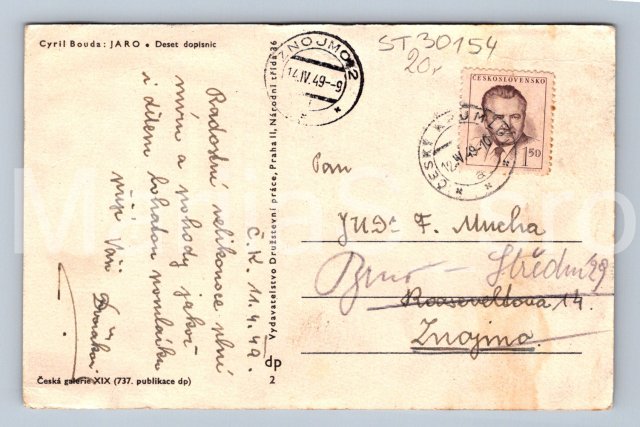 Cyril Bouda: JARO • Deset dopisnic
Radostné velikonoce plné
míru a pohody jakož
i dětem bohatou pomlázku
přejí Vaši Dvořákovi.
Č. K. 11. 4. 49.
Česká galerie XIX (737. publikace dp)
Vydavatelstvo Družstevní práce, Praha II, Národní třída 36
dp
2
ZNOJMO 2
14.IV.49-9
ST 30154
20,-
ČESKOSLOVENSKO
1.50
ČESKÝ KRUMLOV
12.IV.49-10
a
Pan
JUDr F. Mucha
Brno - Střední 29
Rooseveltova 14.
Znojmo